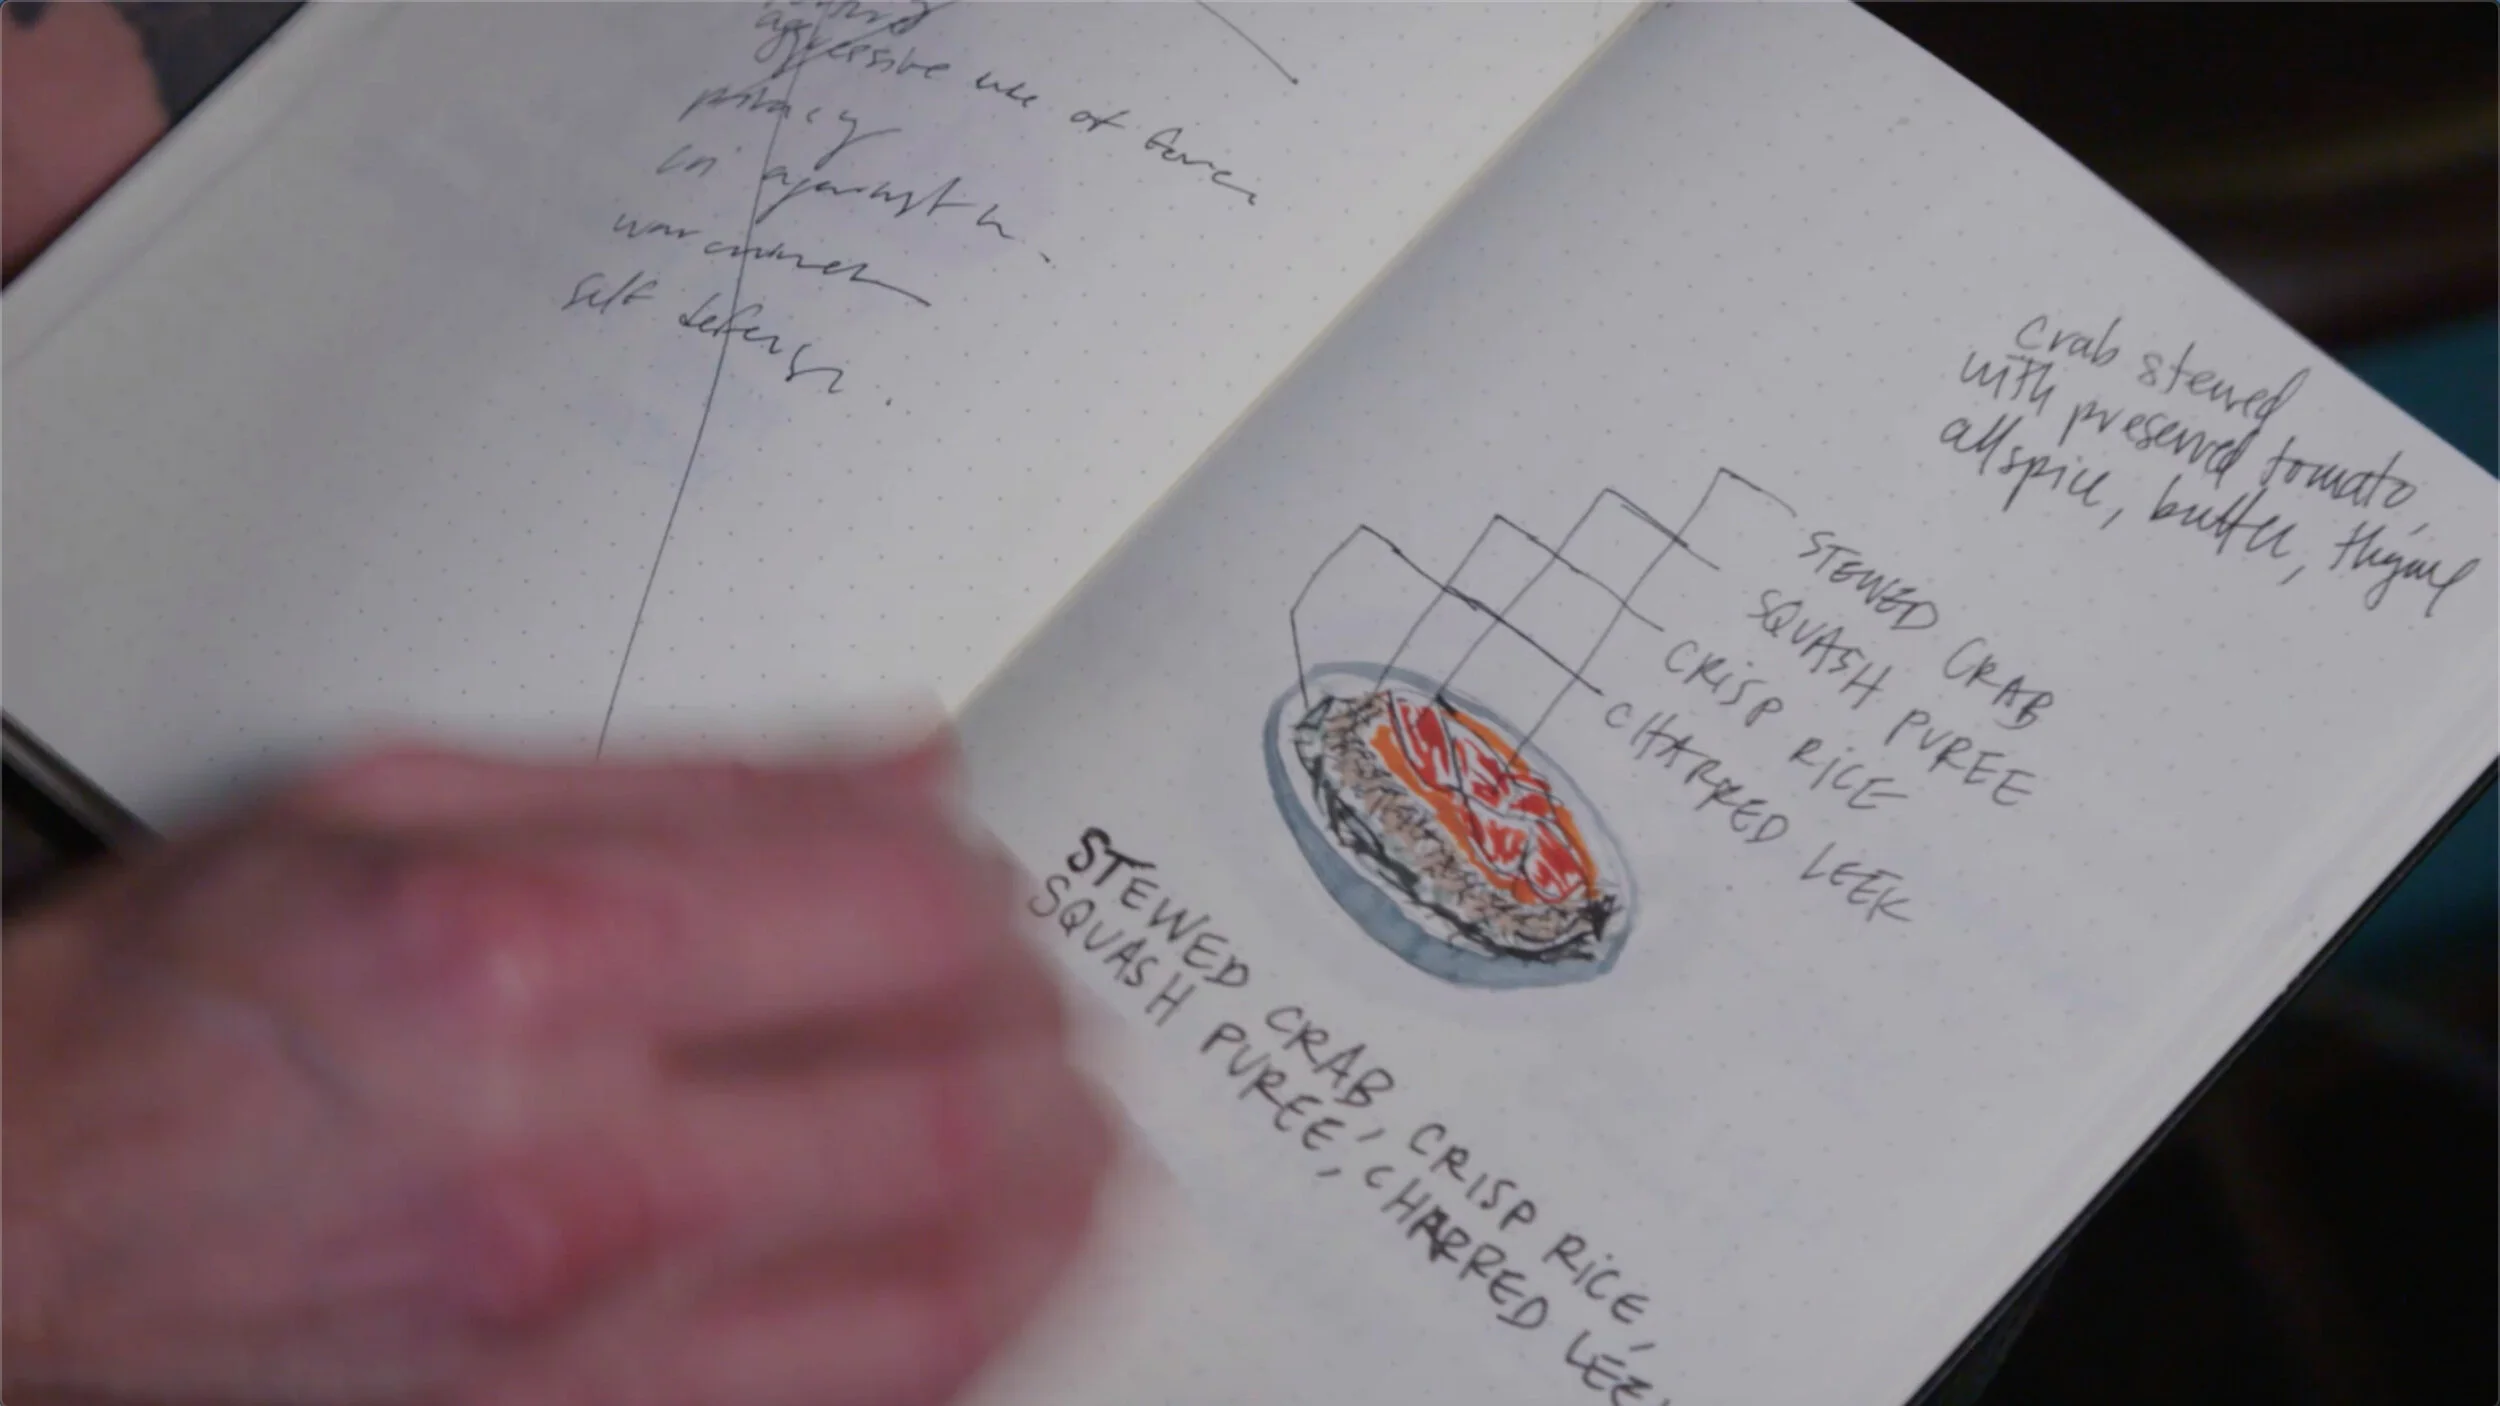 aggressive use of force
privacy
against
war crimes
self defense.
crab stewed
with preserved tomato,
allspice, butter, thyme
STEWED CRAB
SQUASH PUREE
CRISP RICE
CHARRED LEEK
STEWED CRAB, CRISP RICE,
SQUASH PUREE, CHARRED LEE